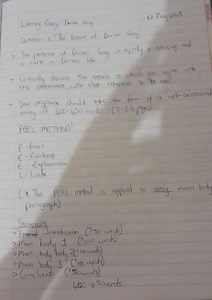 Literary Essay: Dorian Gray
12 May 2025
Question 1: The Picture of Dorian Gray
The portrait of Dorian Gray is equally a blessing and a curse in Dorian's life
Critically discuss the extent to which you agree with this statement, with close reference to the novel
Your response should take the form of a well-constructed essay of 400-450 words (2-2½ pages)
PEEL METHOD!
P - Point
E - Evidence
E - Explanation
L - Link
(* The PEEL method is applied to main body paragraph)
Structure
> Introduction (50 words)
> Main body 1 (100 words)
> Main body 2 (words)
> Main body 3 (words)
> Conclusion (50 words)
400-450 words